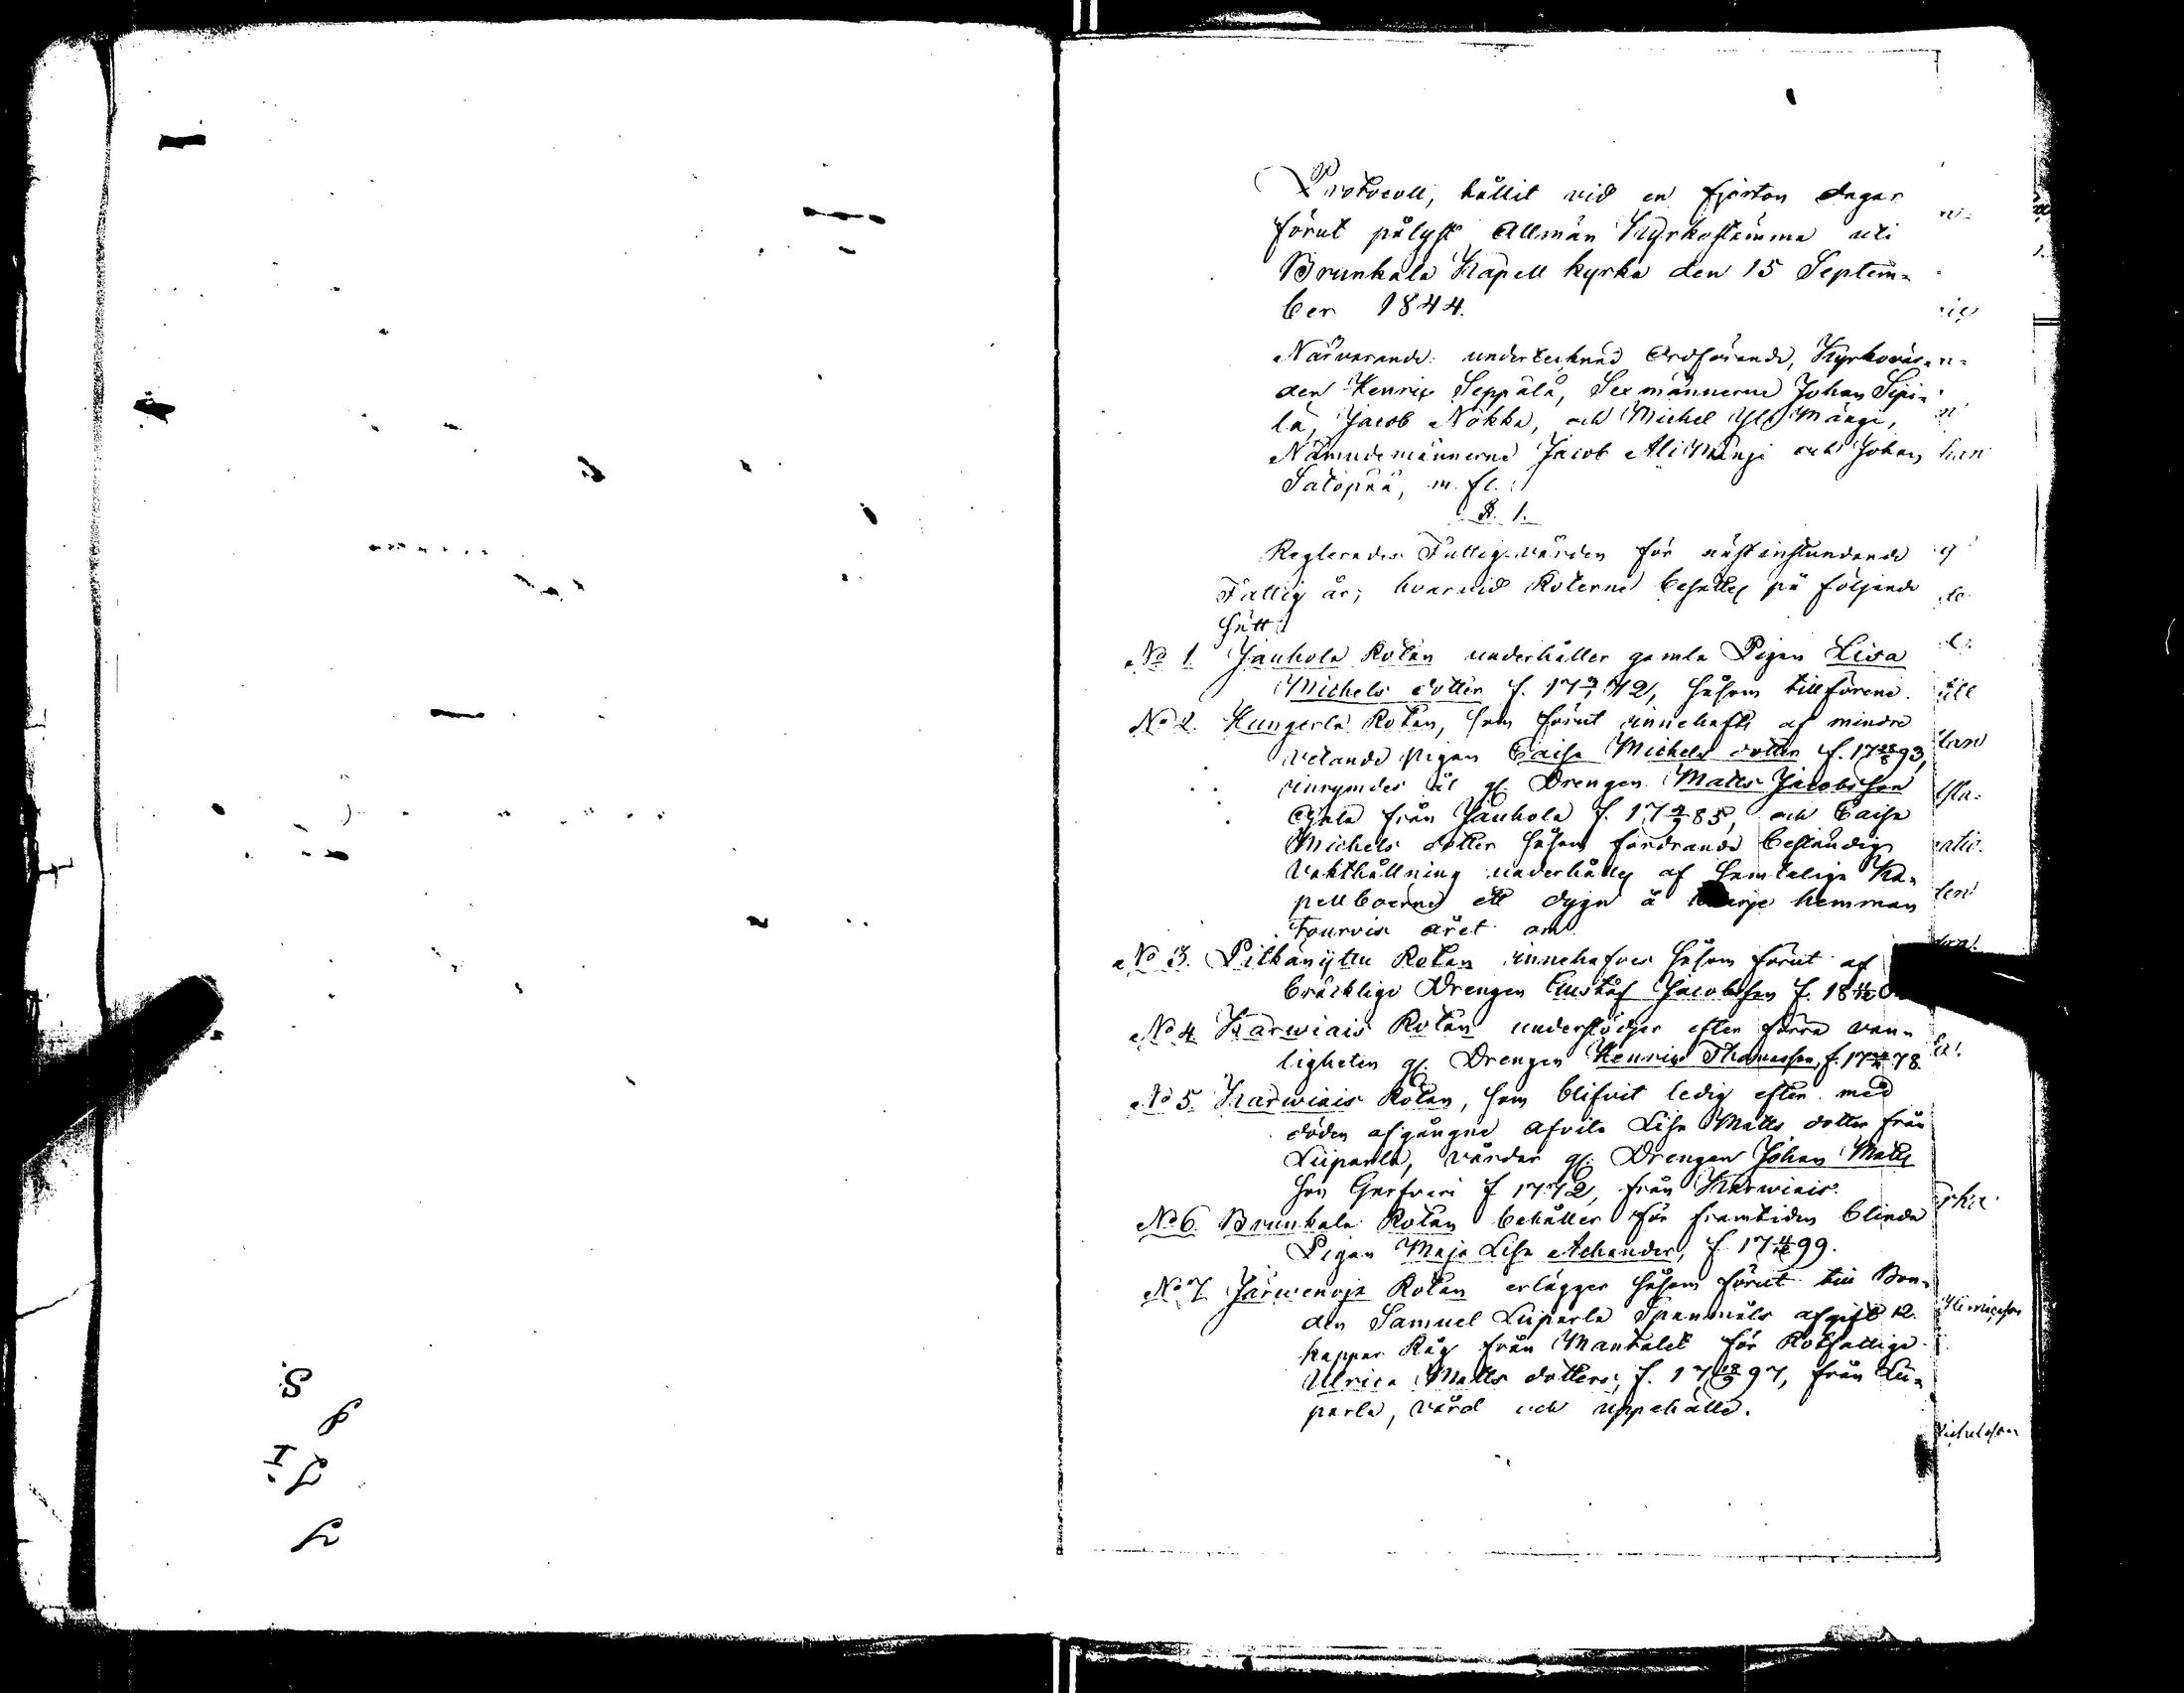 Protocoll, hållit vid en fjorton dagar
förut pålyst Allmän Kyrkostämma uti
Brunkala Kapell kyrka den 15 Septem-
ber 1844.
Närvarande: undertecknad Ordförande, Kyrkovär-
den Henric Seppälä, Sexmännerne Johan Sipi-
lä, Jacob Nokka, och Michel Yli Mängi,
Nämndemännerne Jacob Ali Mängi och Johan
Satopää, m. fl.
§. 1.
Reglerades Fattigvården för nästinstundande
Fattig år; hvarvid Roterne besattes på följande
sätt:
No 1. Jauhola Rotan underhåller gamla Pigan Lisa
Michels dotter f. 1772, såsom tillförene.
No 2. Kungerla Rotan, som förut innehafts af mindre
vetande pigan Caisa Michels dotter f. 17 93,
inrymdes åt gl. Drengen Matts Jacobsson
från Jauhola f. 17 85, och Caisa
Michels dotter såsom fordrande beständig
vakthållning underhålles af samtelige Ka-
pellboerne ett dygn å hvarje hemman
tourvis året om.
No 3. Pitkäniittu Rotan innehafves såsom förut af
bräcklige Drengen Gustaf Jacobsson f. 18
No 4. Karwiais Rotan understödjer efter förra van-
ligheten gl. Drengen Henric Thomasson, f. 17 78.
No 5. Karwiais Rotan, som blifvit ledig efter med
döden afgångne afvita Lisa Matts dotter från
Liiparla, vårdar gl. Drengen Johan Matts
son f 1772, från Karwiais.
No 6. Brunkala Rotan behåller för framtiden blinda
Pigan Maja Lisa Achander, f 17 99.
No 7. Järwenoja Rotan erlägger såsom förut till Bon-
den Samuel Liiparla Spanmåls afgift 12
kappar Råg från Mantalet för Rotfattige
Ulrica Matts dotters, f. 17 97, från Lii-
parla, vård och uppehälle.